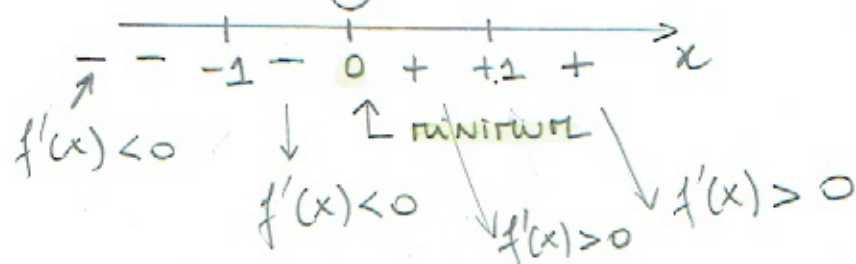 − − -1 − 0 + +1 + x
f'(x) < 0 ↑ minimum
f'(x) < 0 f'(x) > 0 f'(x) > 0